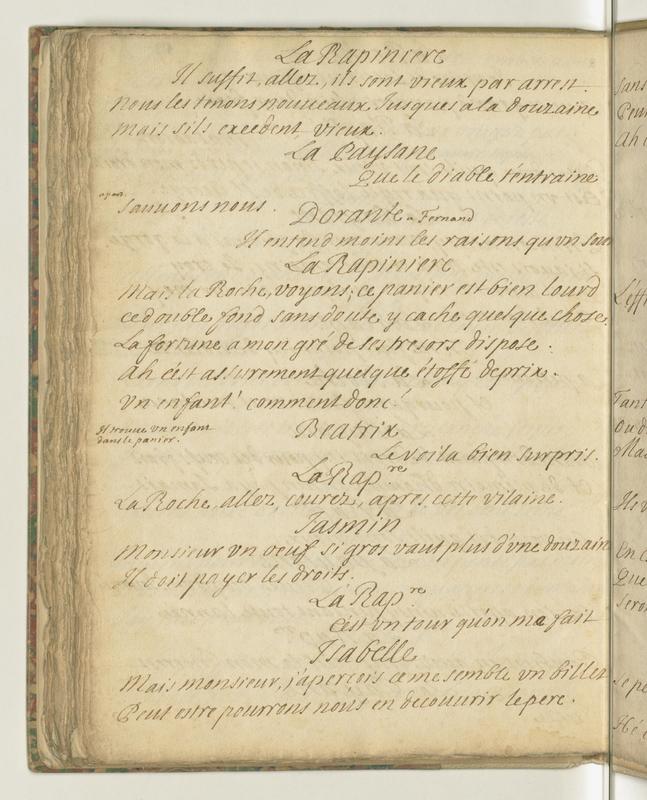 La Rapiniere
Il suffit, allez, ils sont vieux par arrest.
nous les tenons nouveaux Jusques a la douzaine
mais s'ils excedent vieux.
La Paysane
Que le diable t'entraine
apart
Sauuons nous.
Dorante a Fernand
Il entend moins les raisons qu'vn sour
La Rapiniere
Mais la Roche, voyons; ce panier est bien lourd
ce double fond sans doute, y cache quelque chose.
La fortune a mon gré de ses tresors dispose.
ah c'est assurement quelque étoffe de prix.
vn enfant! comment donc!
Il trouue vn enfant
dans le panier.
Beatrix
Le voila bien surpris.
La Rap.re
La Roche, allez, courez, apres cette vilaine.
Jasmin
Monsieur vn oeuf si gros vaut plus d'vne douzain
Il doit payer les droits.
La Rap.re
c'est vn tour qu'on ma fait
Isabelle
Mais monsieur, j'aperçois ce me semble vn billet
Peut estre pourrons nous en decouurir le pere.
sans
Peut
ah
L'eff
Tant
ou d
Ma
Ils v
En c
Que
sero
se pe
Hé